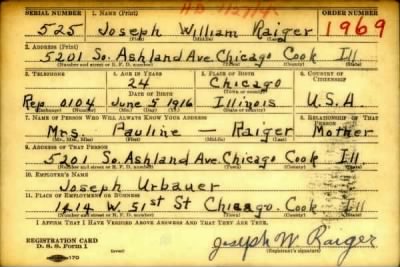 SERIAL NUMBER 1. NAME (Print) ORDER NUMBER
525 Joseph William Raiger 1969
(First) (Middle) (Last)
2. ADDRESS (Print)
5201 So. Ashland Ave. Chicago Cook Ill
(Number and street or R. F. D. number) (Town) (County) (State)
3. TELEPHONE 4. AGE IN YEARS 5. PLACE OF BIRTH 6. COUNTRY OF CITIZENSHIP
24 Chicago
DATE OF BIRTH (Town or county)
Rep 0104 June 5 1916 Illinois U.S.A
(Exchange) (No.) (Mo.) (Day) (Yr.) (State or country)
7. NAME OF PERSON WHO WILL ALWAYS KNOW YOUR ADDRESS 8. RELATIONSHIP OF THAT PERSON
Mrs. Pauline — Raiger Mother
(Mr., Mrs., Miss) (First) (Middle) (Last)
9. ADDRESS OF THAT PERSON
5201 So. Ashland Ave. Chicago Cook Ill
(Number and street or R. F. D. number) (Town) (County) (State)
10. EMPLOYER'S NAME
Joseph Urbauer
11. PLACE OF EMPLOYMENT OR BUSINESS
1414 W. 51st St Chicago. Cook Ill
(Number and street or R. F. D. number) (Town) (County) (State)
I AFFIRM THAT I HAVE VERIFIED ABOVE ANSWERS AND THAT THEY ARE TRUE.
REGISTRATION CARD
D. S. S. Form 1 Joseph W Raiger
(Registrant's signature)